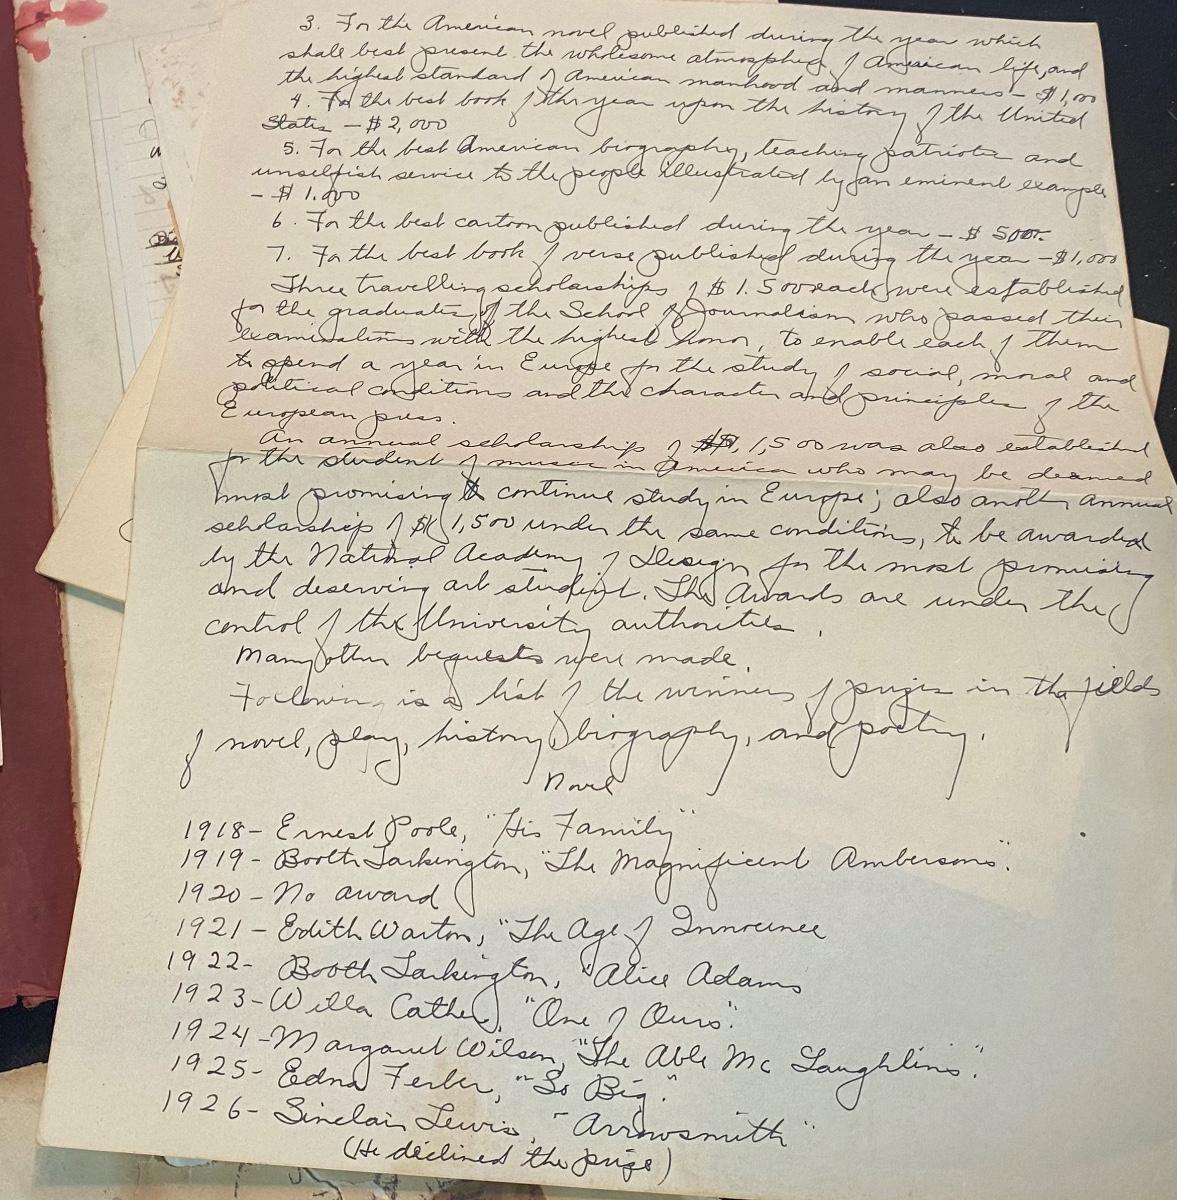 3. For the American novel published during the year which
shall best present the wholesome atmosphere of American life, and
the highest standard of American manhood and manners - $1,000
4. For the best book of the year upon the history of the United
States - $2,000
5. For the best American biography, teaching patriotic and
unselfish service to the people illustrated by an eminent example
- $1.000
6. For the best cartoon published during the year - $500.
7. For the best book of verse published during the year - $1,000
Three travelling scholarships of $1.500 each were established
for the graduates of the School of Journalism who passed their
examinations with the highest honor, to enable each of them
to spend a year in Europe for the study of social, moral and
political conditions and the character and principles of the
European press.
An annual scholarship of $1,500 was also established
for the student of music in America who may be deemed
most promising to continue study in Europe; also another annual
scholarship of $1,500 under the same conditions, to be awarded
by the National Academy of Design for the most promising
and deserving art student. The Awards are under the
control of the University authorities.
Many other bequests were made.
Following is a list of the winners of prizes in the fields
of novel, play, history, biography, and poetry.
Novel
1918- Ernest Poole, "His Family"
1919- Booth Tarkington, "The Magnificent Ambersons".
1920- No award
1921- Edith Warton, "The Age of Innocence
1922- Booth Tarkington, "Alice Adams
1923- Willa Cather, "One of Ours".
1924- Margaret Wilson, "The Able Mc Laughlins".
1925- Edna Ferber, "So Big."
1926- Sinclair Lewis, "Arrowsmith"
(He declined the prize)